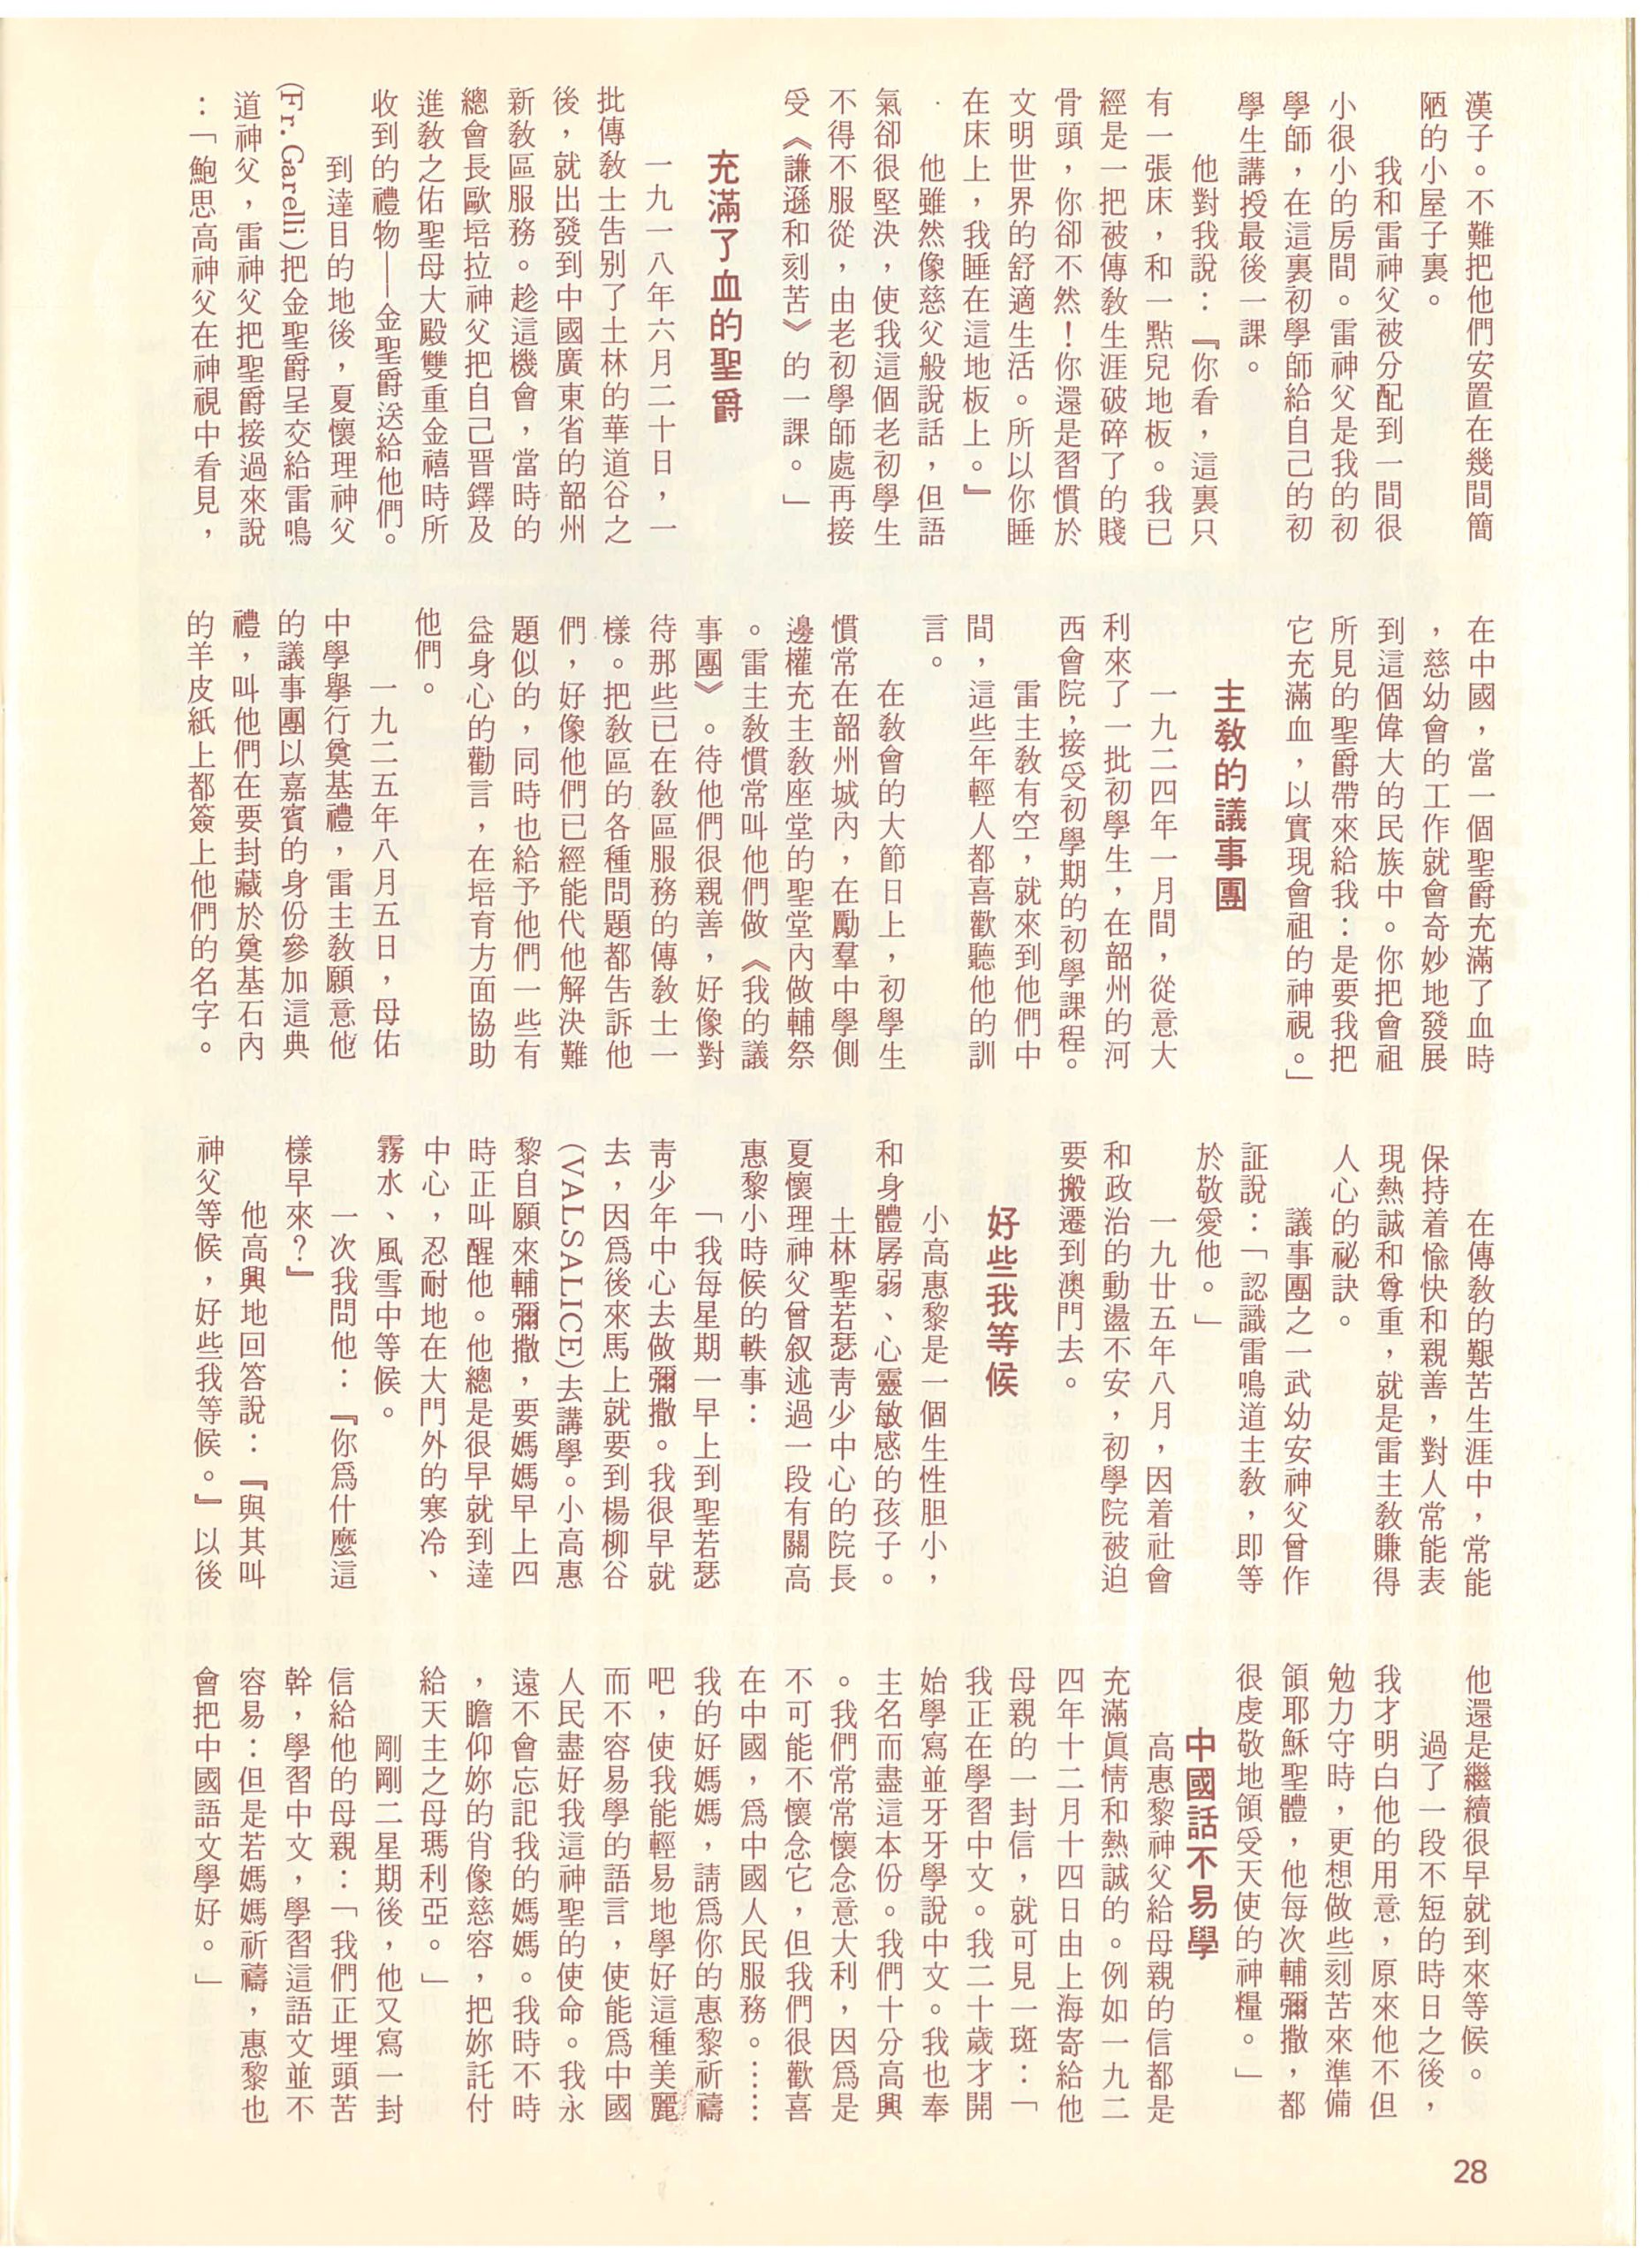 漢子。不難把他們安置在幾間簡
陋的小屋子裏。
我和雷神父被分配到一間很
小很小的房間。雷神父是我的初
學師，在這裏初學師給自己的初
學生講授最後一課。
他對我說：『你看，這裏只
有一張床，和一點兒地板。我已
經是一把被傳教生涯破碎了的賤
骨頭，你卻不然！你還是習慣於
文明世界的舒適生活。所以你睡
在床上，我睡在這地板上。』
他雖然像慈父般說話，但語
氣卻很堅決，使我這個老初學生
不得不服從，由老初學師處再接
受《謙遜和刻苦》的一課。」
充滿了血的聖爵
一九一八年六月二十日，一
批傳教士告别了土林的華道谷之
後，就出發到中國廣東省的韶州
新教區服務。趁這機會，當時的
總會長歐培拉神父把自己晋鐸及
進教之佑聖母大殿雙重金禧時所
收到的禮物——金聖爵送給他們。
到達目的地後，夏懷理神父
(Fr. Garelli)把金聖爵呈交給雷鳴
道神父，雷神父把聖爵接過來說
：「鮑思高神父在神視中看見，
在中國，當一個聖爵充滿了血時
，慈幼會的工作就會奇妙地發展
到這個偉大的民族中。你把會祖
所見的聖爵帶來給我：是要我把
它充滿血，以實現會祖的神視。」
主教的議事團
一九二四年一月間，從意大
利來了一批初學生，在韶州的河
西會院，接受初學期的初學課程。
雷主教有空，就來到他們中
間，這些年輕人都喜歡聽他的訓
言。
在教會的大節日上，初學生
慣常在韶州城內，在勵羣中學側
邊權充主教座堂的聖堂內做輔祭
。雷主教慣常叫他們做《我的議
事團》。待他們很親善，好像對
待那些已在教區服務的傳教士一
樣。把教區的各種問題都告訴他
們，好像他們已經能代他解決難
題似的，同時也給予他們一些有
益身心的勸言，在培育方面協助
他們。
一九二五年八月五日，母佑
中學舉行奠基禮，雷主教願意他
的議事團以嘉賓的身份參加這典
禮，叫他們在要封藏於奠基石內
的羊皮紙上都簽上他們的名字。
在傳教的艱苦生涯中，常能
保持着愉快和親善，對人常能表
現熱誠和尊重，就是雷主教賺得
人心的祕訣。
議事團之一武幼安神父曾作
証說：「認識雷鳴道主教，即等
於敬愛他。」
一九廿五年八月，因着社會
和政治的動盪不安，初學院被迫
要搬遷到澳門去。
好些我等候
小高惠黎是一個生性胆小，
和身體孱弱、心靈敏感的孩子。
土林聖若瑟青少中心的院長
夏懷理神父曾叙述過一段有關高
惠黎小時候的軼事：
「我每星期一早上到聖若瑟
青少年中心去做彌撒。我很早就
去，因爲後來馬上就要到楊柳谷
(VALSALICE)去講學。小高惠
黎自願來輔彌撒，要媽媽早上四
時正叫醒他。他總是很早就到達
中心，忍耐地在大門外的寒冷、
霧水、風雪中等候。
一次我問他：『你爲什麼這
樣早來？』
他高興地回答說：『與其叫
神父等候，好些我等候。』以後
他還是繼續很早就到來等候。
過了一段不短的時日之後，
我才明白他的用意，原來他不但
勉力守時，更想做些刻苦來準備
領耶穌聖體，他每次輔彌撒，都
很虔敬地領受天使的神糧。」
中國話不易學
高惠黎神父給母親的信都是
充滿眞情和熱誠的。例如一九二
四年十二月十四日由上海寄給他
母親的一封信，就可見一斑：「
我正在學習中文。我二十歲才開
始學寫並牙牙學說中文。我也奉
主名而盡這本份。我們十分高興
。我們常常懷念意大利，因爲是
不可能不懷念它，但我們很歡喜
在中國，爲中國人民服務。……
我的好媽媽，請爲你的惠黎祈禱
吧，使我能輕易地學好這種美麗
而不容易學的語言，使能爲中國
人民盡好我這神聖的使命。我永
遠不會忘記我的媽媽。我時不時
，瞻仰妳的肖像慈容，把妳託付
給天主之母瑪利亞。」
剛剛二星期後，他又寫一封
信給他的母親：「我們正埋頭苦
幹，學習中文，學習這語文並不
容易：但是若媽媽祈禱，惠黎也
會把中國語文學好。」
28